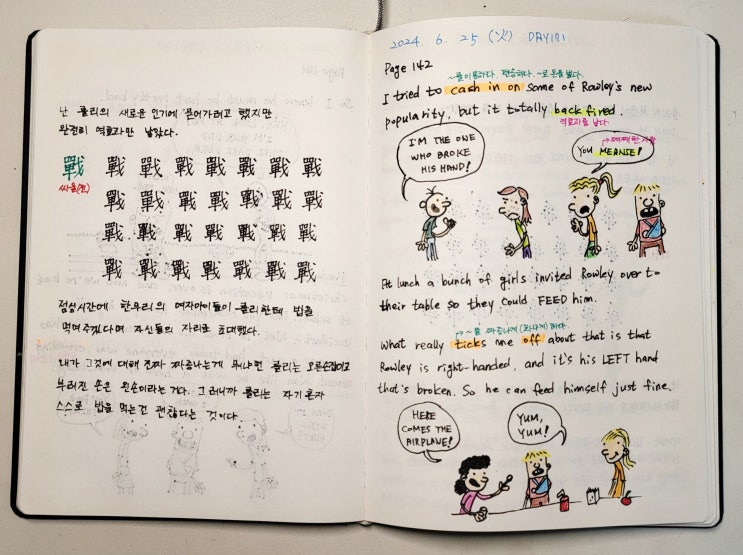 난 롤리의 새로운 인기에 묻어가려고 했지만,
완전히 역효과만 났다.
戰 戰 戰 戰 戰 戰 戰
싸움(전)
戰 戰 戰 戰 戰 戰
戰 戰 戰 戰 戰 戰
戰 戰 戰 戰 戰 戰
점심시간에 한무리의 여자아이들이 롤리한테 밥을
먹여주겠다며 자신들의 자리로 초대했다.
내가 그것에 대해 진짜 짜증나는게 뭐냐면 롤리는 오른손잡이고
부러진 손은 왼손이라는 거다. 그러니까 롤리는 자기 혼자
스스로 밥을 먹는건 괜찮다는 것이다.
2024. 6. 25 (火) DAY171
Page 142
I tried to cash in on some of Rowley's new
popularity, but it totally back fired.
역효과를 낳다.
I'M THE ONE
WHO BROKE
HIS HAND!
YOU MEANIE!
At lunch a bunch of girls invited Rowley over to
their table so they could FEED him.
~를 짜증나게(화나게)하다
What really ticks me off about that is that
Rowley is right-handed, and it's his LEFT hand
that's broken. So he can feed himself just fine.
HERE
COMES THE
AIRPLANE!
YUM,
YUM!